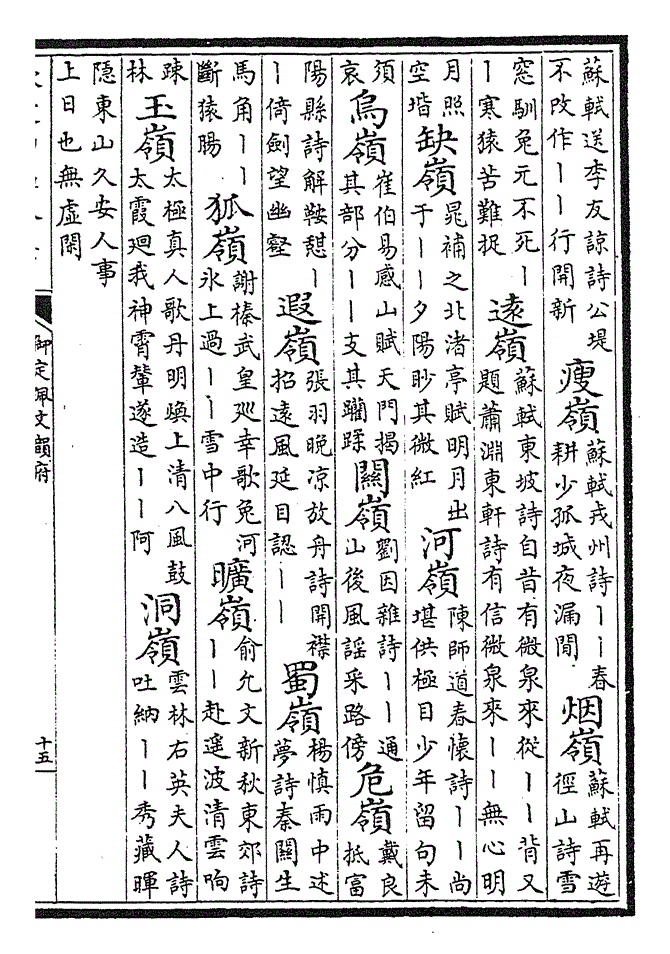 蘇軾送李友諒詩公堤
不改作丨丨行開新
瘦嶺
蘇軾戎州詩丨丨春
耕少孤城夜漏閒
烟嶺
蘇軾再遊
徑山詩雪
窓馴兔元不死丨
丨寒猿苦難捉
遠嶺
蘇軾東坡詩自昔有微泉來從丨丨背又
題蕭淵東軒詩有信微泉來丨丨無心明
月照
空堦
缺嶺
晁補之北渚亭賦明月出
于丨丨夕陽眇其微紅
河嶺
陳師道春懷詩丨丨尚
堪供極目少年留句未
須
哀
烏嶺
崔伯易感山賦天門揭
其部分丨丨支其躪蹂
關嶺
劉因雜詩丨丨通
山後風謡采路傍
危嶺
戴良
抵富
陽縣詩解鞍憇丨
丨倚劍望幽壑
遐嶺
張羽晚凉放舟詩開襟
招遠風延目認丨丨
蜀嶺
楊慎雨中述
夢詩秦關生
馬角丨丨
斷猿腸
狐嶺
謝榛武皇廵幸歌兔河
氷上過丨丨雪中行
曠嶺
俞允文新秋東郊詩
丨丨赴遥波清雲响
疎
林
玉嶺
太極真人歌丹明煥上清八風鼓
太霞廻我神霄輦遂造丨丨阿
洞嶺
雲林右英夫人詩
吐納丨丨秀藏暉
隱東山久安人事
上日也無虛閑
御定佩文韻府
十五